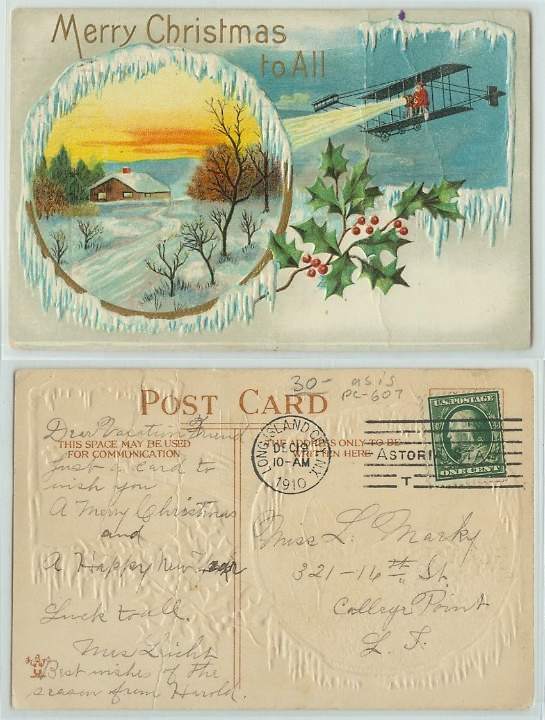 Merry Christmas
to All
30- as is
PC-607
POST CARD
THIS SPACE MAY BE USED
FOR COMMUNICATION
ADDRESS ONLY TO BE
WRITTEN HERE
LONG ISLAND CITY, N.Y.
DEC 19
10-AM
1910
ASTORI
T
U.S. POSTAGE
ONE CENT
Dear Vacation Friend
Just a card to
wish you
A Merry Christmas
and
A Happy New Year
Luck to all.
Mrs Leicht
Best wishes of the
season from Harold.
Miss L. Marky
321-16th St.
College Point
L. I.